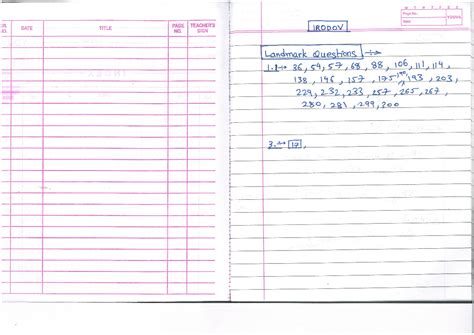 DATE
TITLE
PAGE NO.
TEACHER'S SIGN
Page No.
Date
IRODOV
Landmark Questions :→
1.1→ 36, 54, 57, 68, 88, 106, 111, 114,
138, 146, 157, 175, 193, 203,
229, 232, 233, 257, 265, 267,
280, 281, 299, 200
3.→ 17,